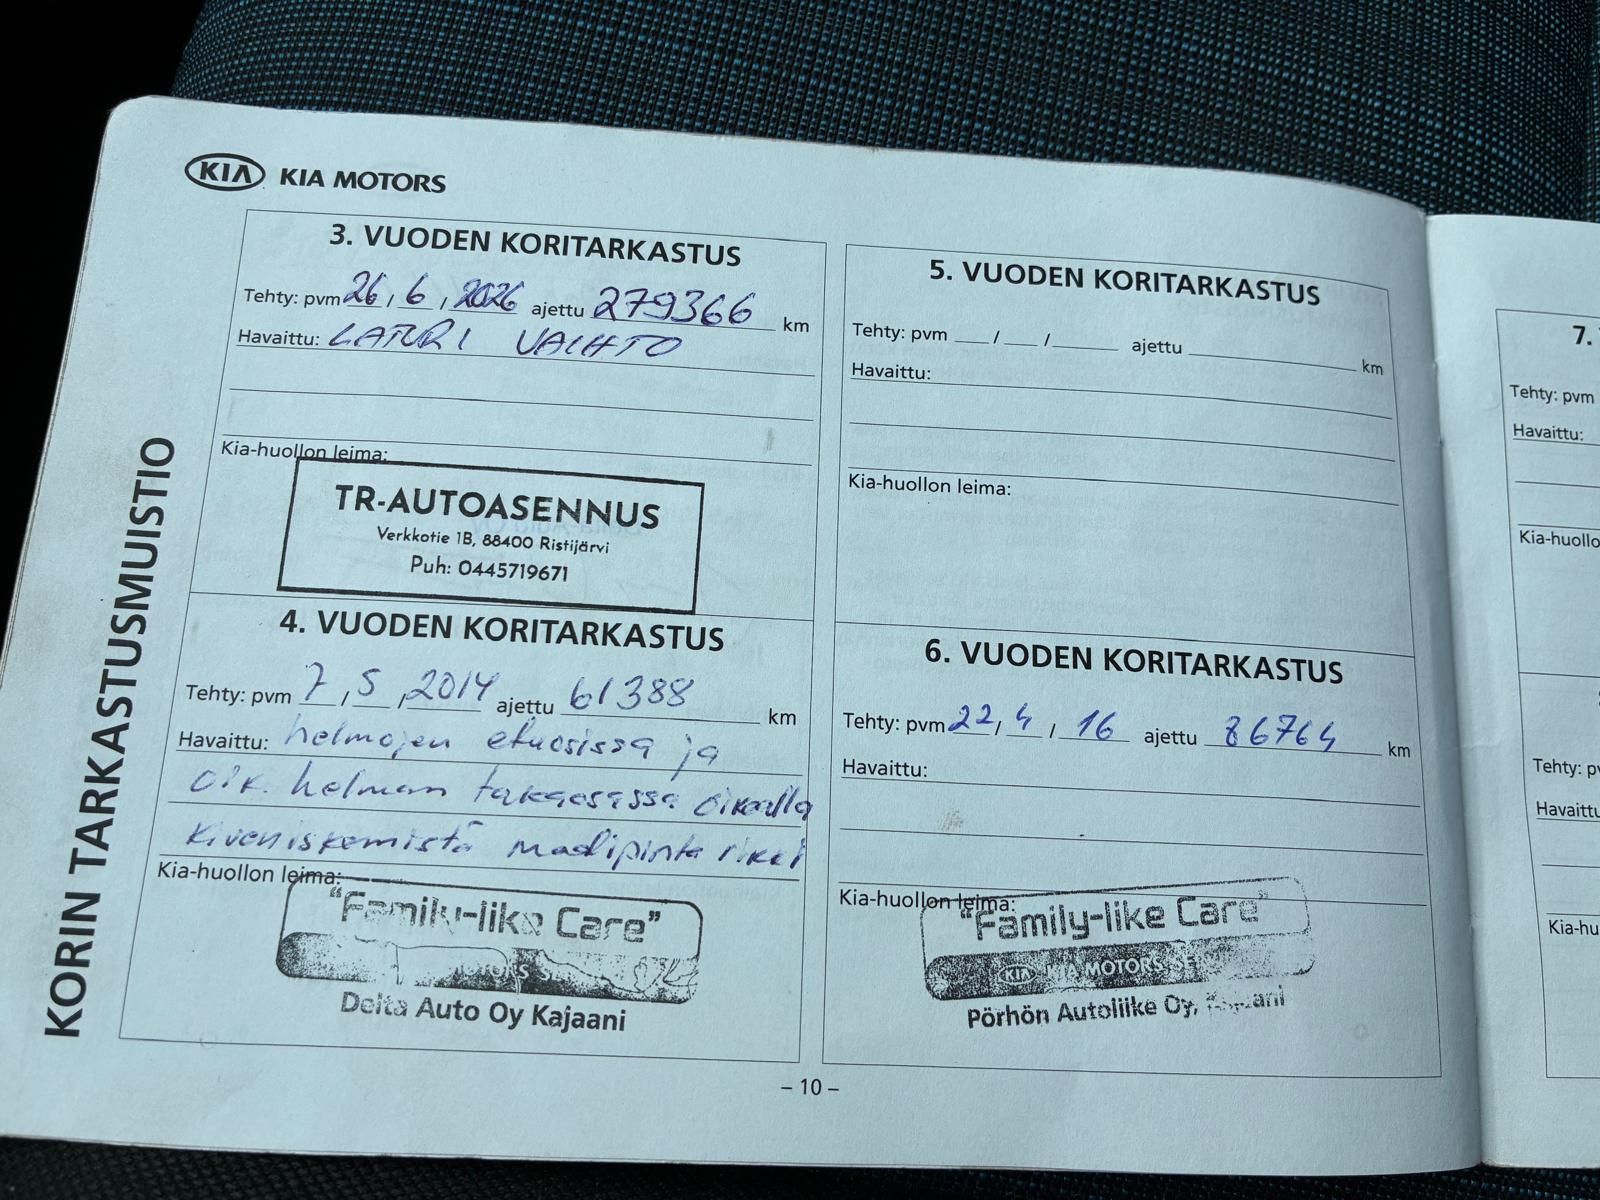 KIA KIA MOTORS
KORIN TARKASTUSMUISTIO
3. VUODEN KORITARKASTUS
Tehty: pvm 26 / 6 / 2026 ajettu 279366 km
Havaittu: LATURI VAIHTO
Kia-huollon leima:
TR-AUTOASENNUS
Verkkotie 1B, 88400 Ristijärvi
Puh: 0445719671
4. VUODEN KORITARKASTUS
Tehty: pvm 7 / 5 / 2014 ajettu 61388 km
Havaittu: helmojen etuosissa ja
oik. helman takaosassa oikealla
kiveniskemistä maalipinta rikki
Kia-huollon leima:
"Family-like Care"
Delta Auto Oy Kajaani
5. VUODEN KORITARKASTUS
Tehty: pvm / / ajettu km
Havaittu:
Kia-huollon leima:
6. VUODEN KORITARKASTUS
Tehty: pvm 22 / 4 / 16 ajettu 86764 km
Havaittu:
Kia-huollon leima:
"Family-like Care"
KIA KIA MOTORS
Pörhön Autoliike Oy, Kajaani
– 10 –
7.
Tehty: pvm
Havaittu:
Kia-huollo
Tehty: pv
Havaittu
Kia-hu